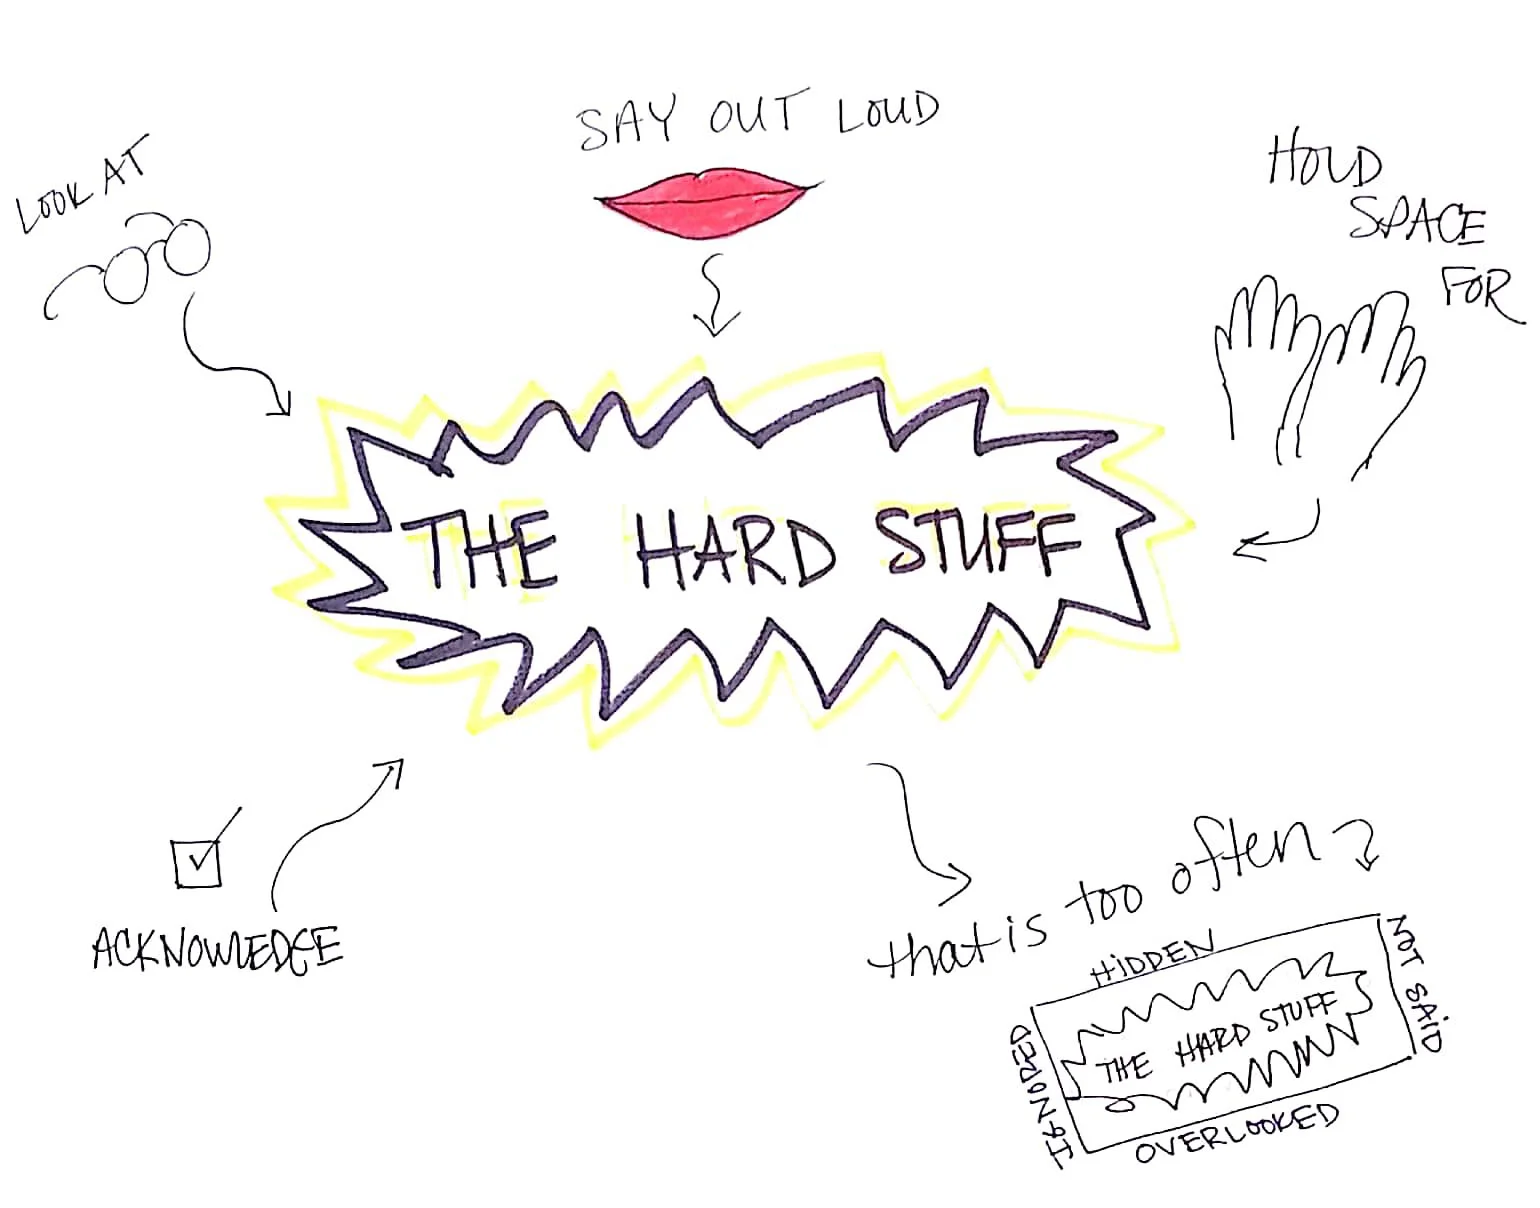 SAY OUT LOUD
LOOK AT
HOLD
SPACE
FOR
THE HARD STUFF
ACKNOWLEDGE
that is too often
HIDDEN
NOT SAID
THE HARD STUFF
IGNORED
OVERLOOKED